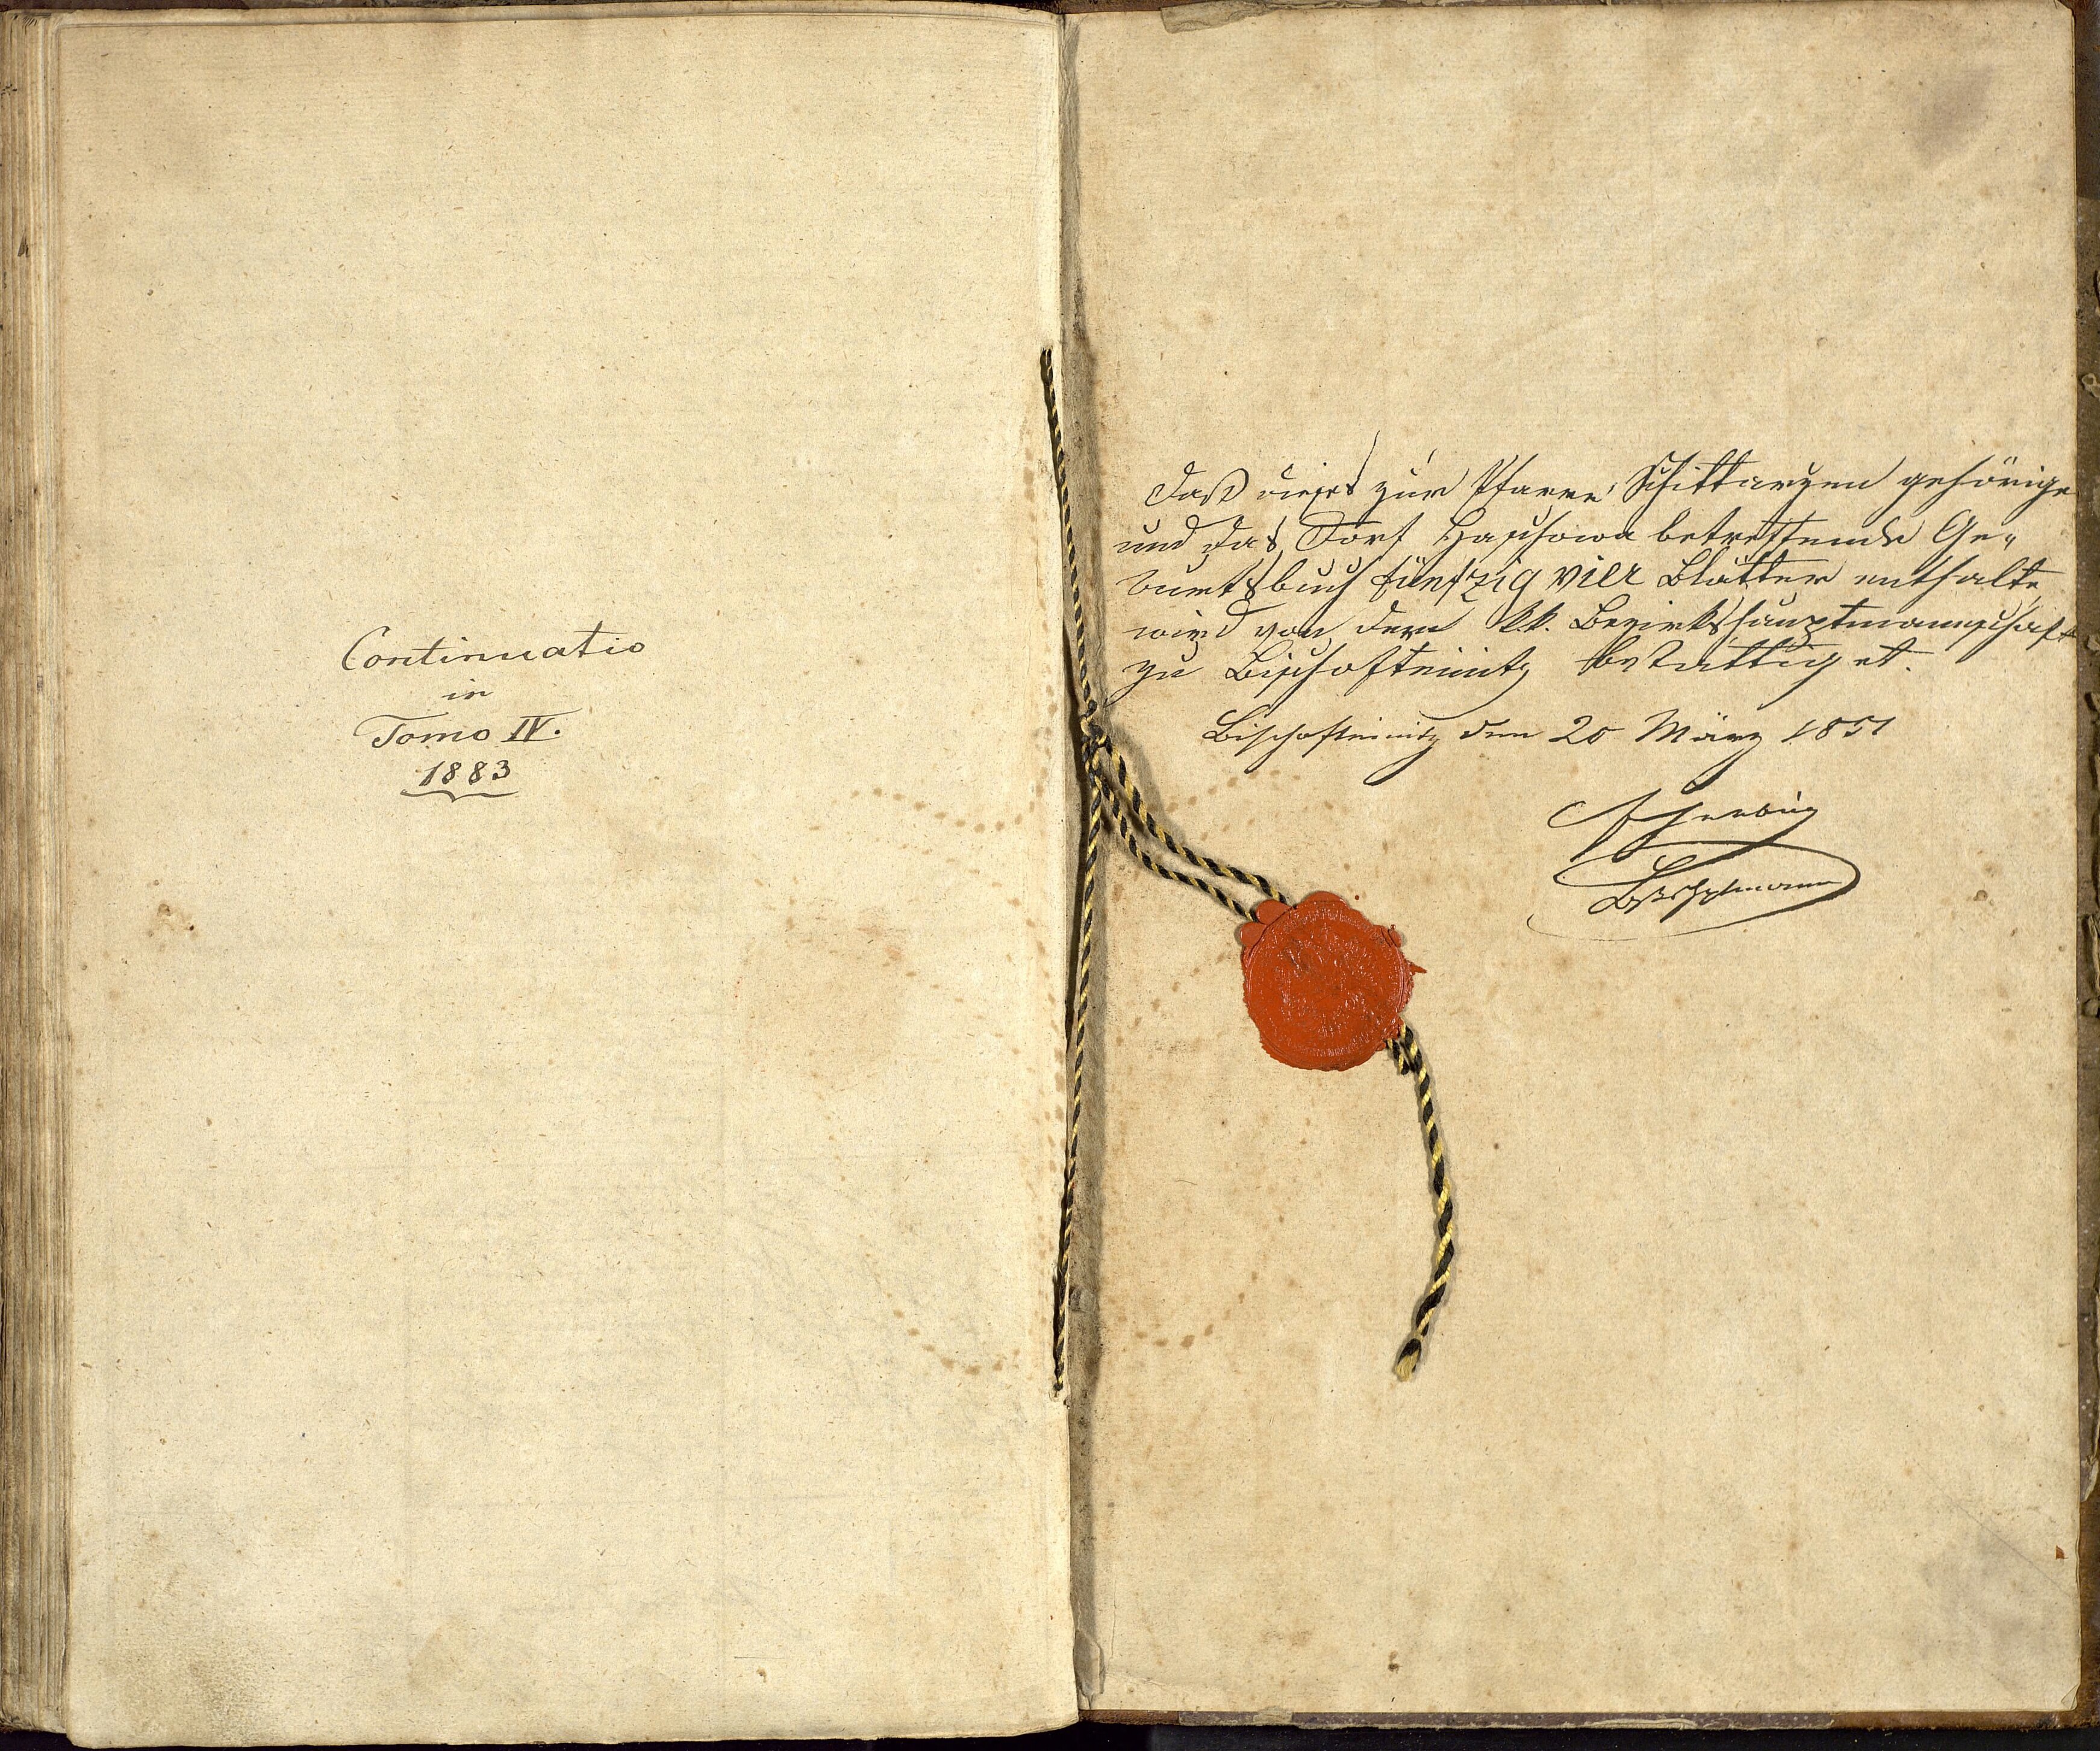 Continuatio
in
Tomo IV.
1883
Daß dieses zur Pfarre Schittarzen gehörige
und das Dorf Haschowa betreffende Ge„
burtsbuch fünfzig vier Blätter enthalte,
wird von der k.k. Bezirkshauptmannschaft
zu Bischofteinitz bestättiget.
Bischofteinitz den 20 März 1851